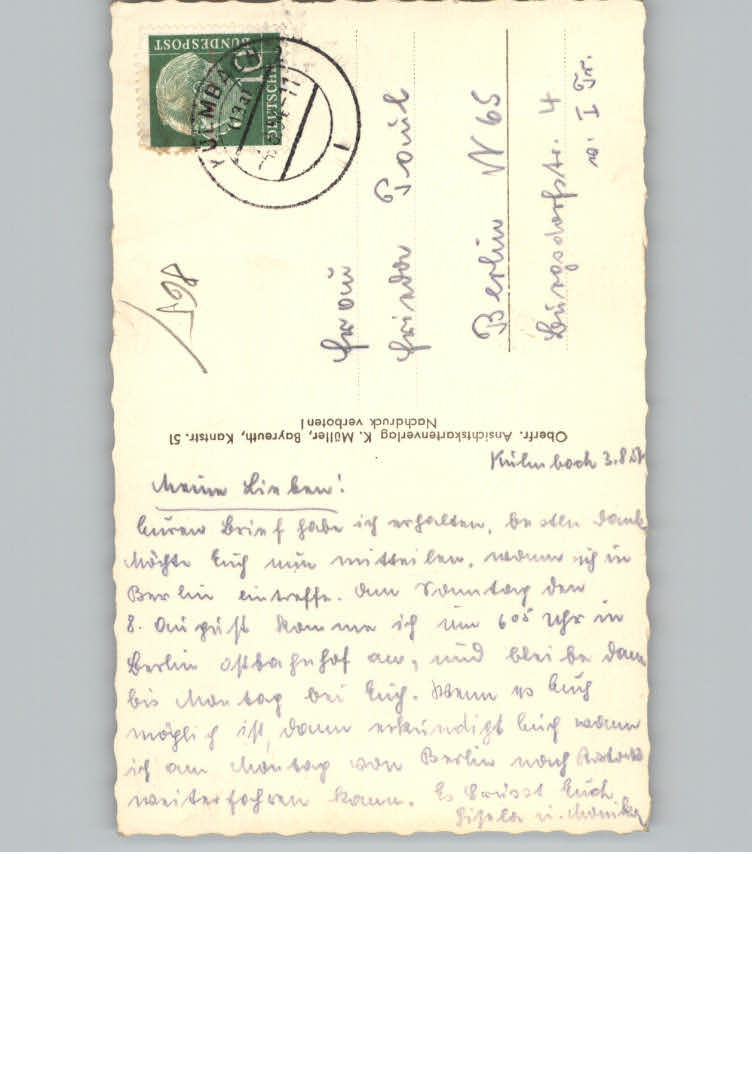 Kulmbach 3.8.54
Meine Lieben!
Euren Brief habe ich erhalten, besten Dank
Möchte Euch nun mitteilen, wann ich in
Berlin eintreffe. Am Sonntag den
8. August komme ich um 6 05 Uhr in
Berlin Ostbahnhof an, und bleibe dann
bis Montag bei Euch. Wenn es Euch
möglich ist, dann erkundigt Euch wann
ich am Montag von Berlin nach Rostock
weiterfahren kann. Es Grüsst Euch
Gisela u. Monika
Oberfr. Ansichtskartenverlag K. Müller, Bayreuth, Kantstr. 51
Nachdruck verboten!
Frau
Frieda Paul
Berlin N 65
Burgsdorfstr. 4
v. I Tr.
198
DEUTSCHE
BUNDESPOST
10
KULMBACH
(13a)